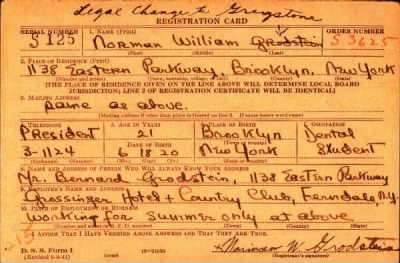 Legal Change to Greystone
REGISTRATION CARD
SERIAL NUMBER 1. NAME (Print) ORDER NUMBER
J 125 Norman William Grodstein 53625
(First) (Middle) (Last)
2. PLACE OF RESIDENCE (Print)
1138 Eastern Parkway, Brooklyn, New York
(Number and street) (Town, township, village, or city) (County) (State)
[THE PLACE OF RESIDENCE GIVEN ON THE LINE ABOVE WILL DETERMINE LOCAL BOARD
JURISDICTION; LINE 2 OF REGISTRATION CERTIFICATE WILL BE IDENTICAL]
3. MAILING ADDRESS
Same as above.
[Mailing address if other than place indicated on line 2. If same insert word same]
4. TELEPHONE 5. AGE IN YEARS 6. PLACE OF BIRTH OCCUPATION
PResident 21 Brooklyn Dental
DATE OF BIRTH
3-1124 6 18 20 New York Student
(Exchange) (Number) (Mo.) (Day) (Yr.) (State or country)
7. NAME AND ADDRESS OF PERSON WHO WILL ALWAYS KNOW YOUR ADDRESS
Mr. Bernard Grodstein, 1138 Eastern Parkway
EMPLOYER'S NAME AND ADDRESS
Grossinger Hotel + Country Club, Ferndale, N.Y.
10. PLACE OF EMPLOYMENT OR BUSINESS
Working for Summer only at above.
I AFFIRM THAT I HAVE VERIFIED ABOVE ANSWERS AND THAT THEY ARE TRUE.
D. S. S. Form 1
(Revised 6-9-41) (over) 16-21630 Norman W. Grodstein